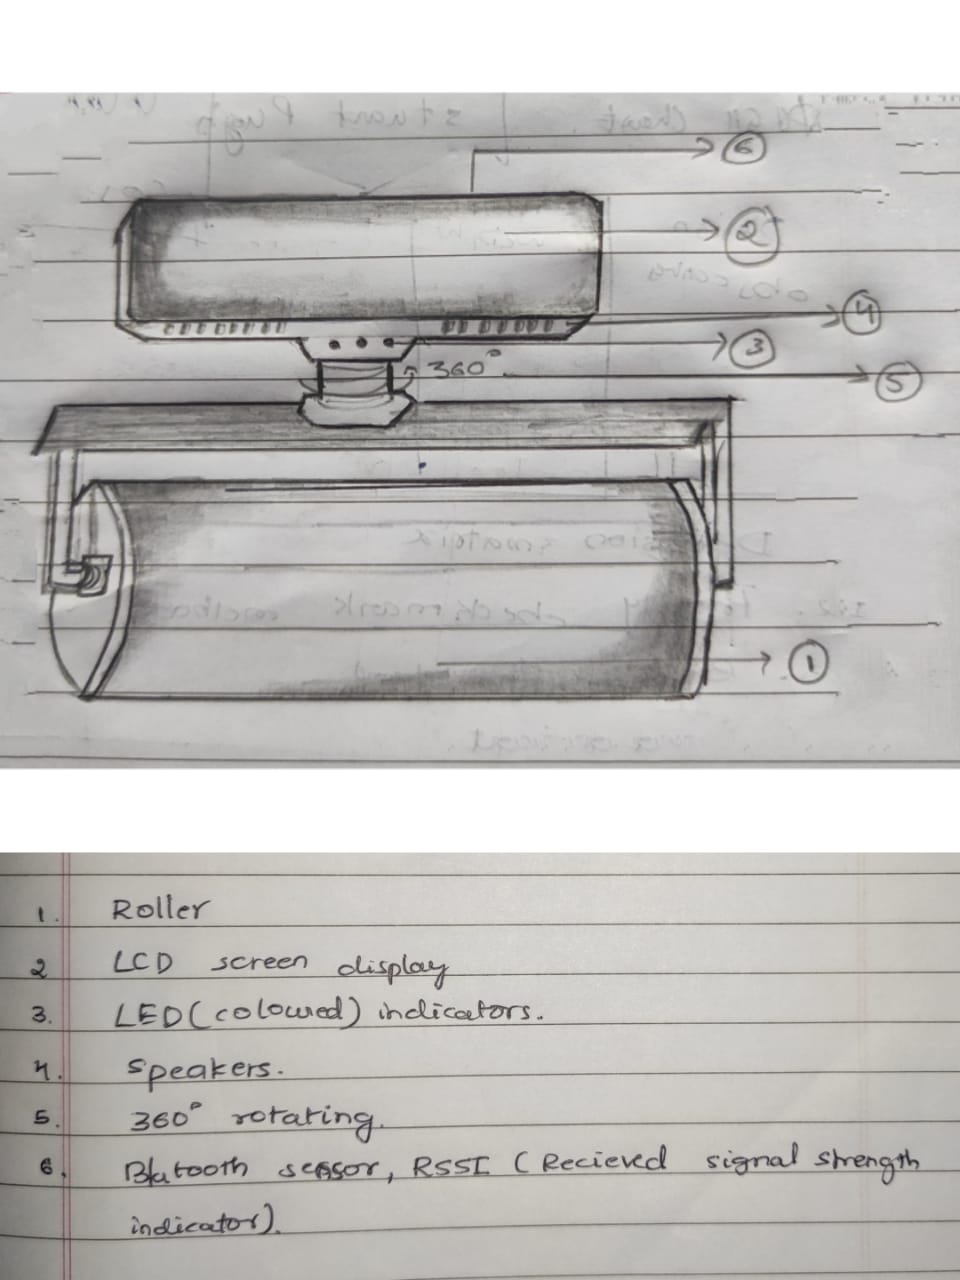 6
2
4
3
360°
5
1
1. Roller
2 LCD screen display
3. LED (coloured) indicators.
4. Speakers.
5. 360° rotating.
6. Blutooth sensor, RSSI (Recieved signal strength
indicator).